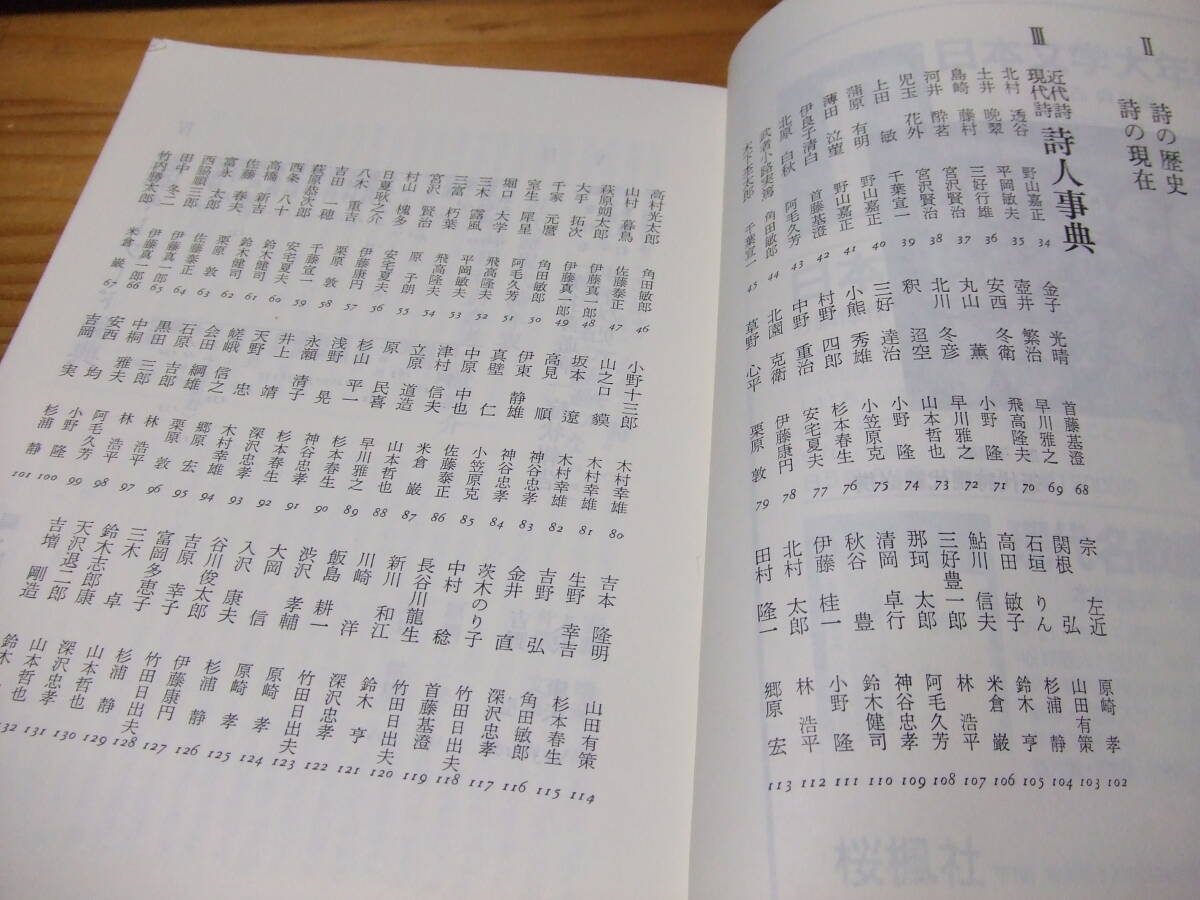 II 詩の歴史
詩の現在
III 近代詩現代詩 詩人事典
北村 透谷 野山嘉正 34
土井 晩翠 平岡敏夫 35
島崎 藤村 三好行雄 36
河井 酔茗 宮沢賢治 37
児玉 花外 宮沢賢治 38
上田 敏 千葉宣一 39
蒲原 有明 野山嘉正 40
薄田 泣菫 野山嘉正 41
伊良子清白 首藤基澄 42
北原 白秋 阿毛久芳 43
武者小路実篤 角田敏郎 44
木下杢太郎 千葉宣一 45
金子 光晴 首藤基澄 68
壺井 繁治 早川雅之 69
安西 冬衛 飛高隆夫 70
丸山 薫 小野 隆 71
北川 冬彦 早川雅之 72
釈 迢空 山本哲也 73
三好 達治 小野 隆 74
小熊 秀雄 小笠原克 75
村野 四郎 杉本春生 76
中野 重治 安宅夏夫 77
北園 克衛 伊藤康円 78
草野 心平 栗原 敦 79
宗 左近 原崎 孝 102
関根 弘 山田有策 103
石垣 りん 杉浦 静 104
高田 敏子 鈴木 亨 105
鮎川 信夫 米倉 巌 106
三好豊一郎 林 浩平 107
那珂 太郎 阿毛久芳 108
清岡 卓行 神谷忠孝 109
秋谷 豊 鈴木健司 110
伊藤 桂一 小野 隆 111
北村 太郎 林 浩平 112
田村 隆一 郷原 宏 113
桜楓社
高村光太郎 角田敏郎 46
山村 暮鳥 佐藤泰正 47
萩原朔太郎 伊藤真一郎 48
大手 拓次 伊藤真一郎 49
千家 元麿 角田敏郎 50
室生 犀星 阿毛久芳 51
堀口 大学 飛高隆夫 52
三木 露風 平岡敏夫 53
三富 朽葉 飛高隆夫 54
宮沢 賢治 原 子朗 55
村山 槐多 安宅夏夫 56
日夏耿之介 伊藤康円 57
八木 重吉 栗原 敦 58
吉田 一穂 千葉宣一 59
萩原恭次郎 安宅夏夫 60
西条 八十 鈴木健司 61
高橋 新吉 鈴木健司 62
佐藤 春夫 栗原 敦 63
富永 太郎 佐藤泰正 64
西脇順三郎 伊藤真一郎 65
田中 冬二 伊藤真一郎 66
竹内勝太郎 米倉 巌 67
小野十三郎 木村幸雄 80
山之口 貘 木村幸雄 81
坂本 遼 木村幸雄 82
高見 順 神谷忠孝 83
伊東 静雄 神谷忠孝 84
真壁 仁 小笠原克 85
中原 中也 佐藤泰正 86
津村 信夫 米倉 巌 87
立原 道造 山本哲也 88
原 民喜 早川雅之 89
杉山 平一 杉本春生 90
浅野 晃 神谷忠孝 91
永瀬 清子 杉本春生 92
井上 靖 深沢忠孝 93
天野 忠 木村幸雄 94
嵯峨 信之 郷原 宏 95
会田 綱雄 栗原 敦 96
石原 吉郎 林 浩平 97
黒田 三郎 林 浩平 98
中桐 雅夫 阿毛久芳 99
安西 均 小野 隆 100
吉岡 実 杉浦 静 101
吉本 隆明 山田有策 114
生野 幸吉 杉本春生 115
吉野 弘 角田敏郎 116
金井 直 深沢忠孝 117
茨木のり子 竹田日出夫 118
中村 稔 首藤基澄 119
長谷川龍生 竹田日出夫 120
新川 和江 鈴木 亨 121
川崎 洋 深沢忠孝 122
飯島 耕一 竹田日出夫 123
渋沢 孝輔 原崎 孝 124
大岡 信 原崎 孝 125
入沢 康夫 杉浦 静 126
谷川俊太郎 伊藤康円 127
吉原 幸子 竹田日出夫 128
富岡多恵子 杉浦 静 129
三木 卓 山本哲也 130
鈴木志郎康 深沢忠孝 131
天沢退二郎 山本哲也 132
吉増 剛造 鈴木